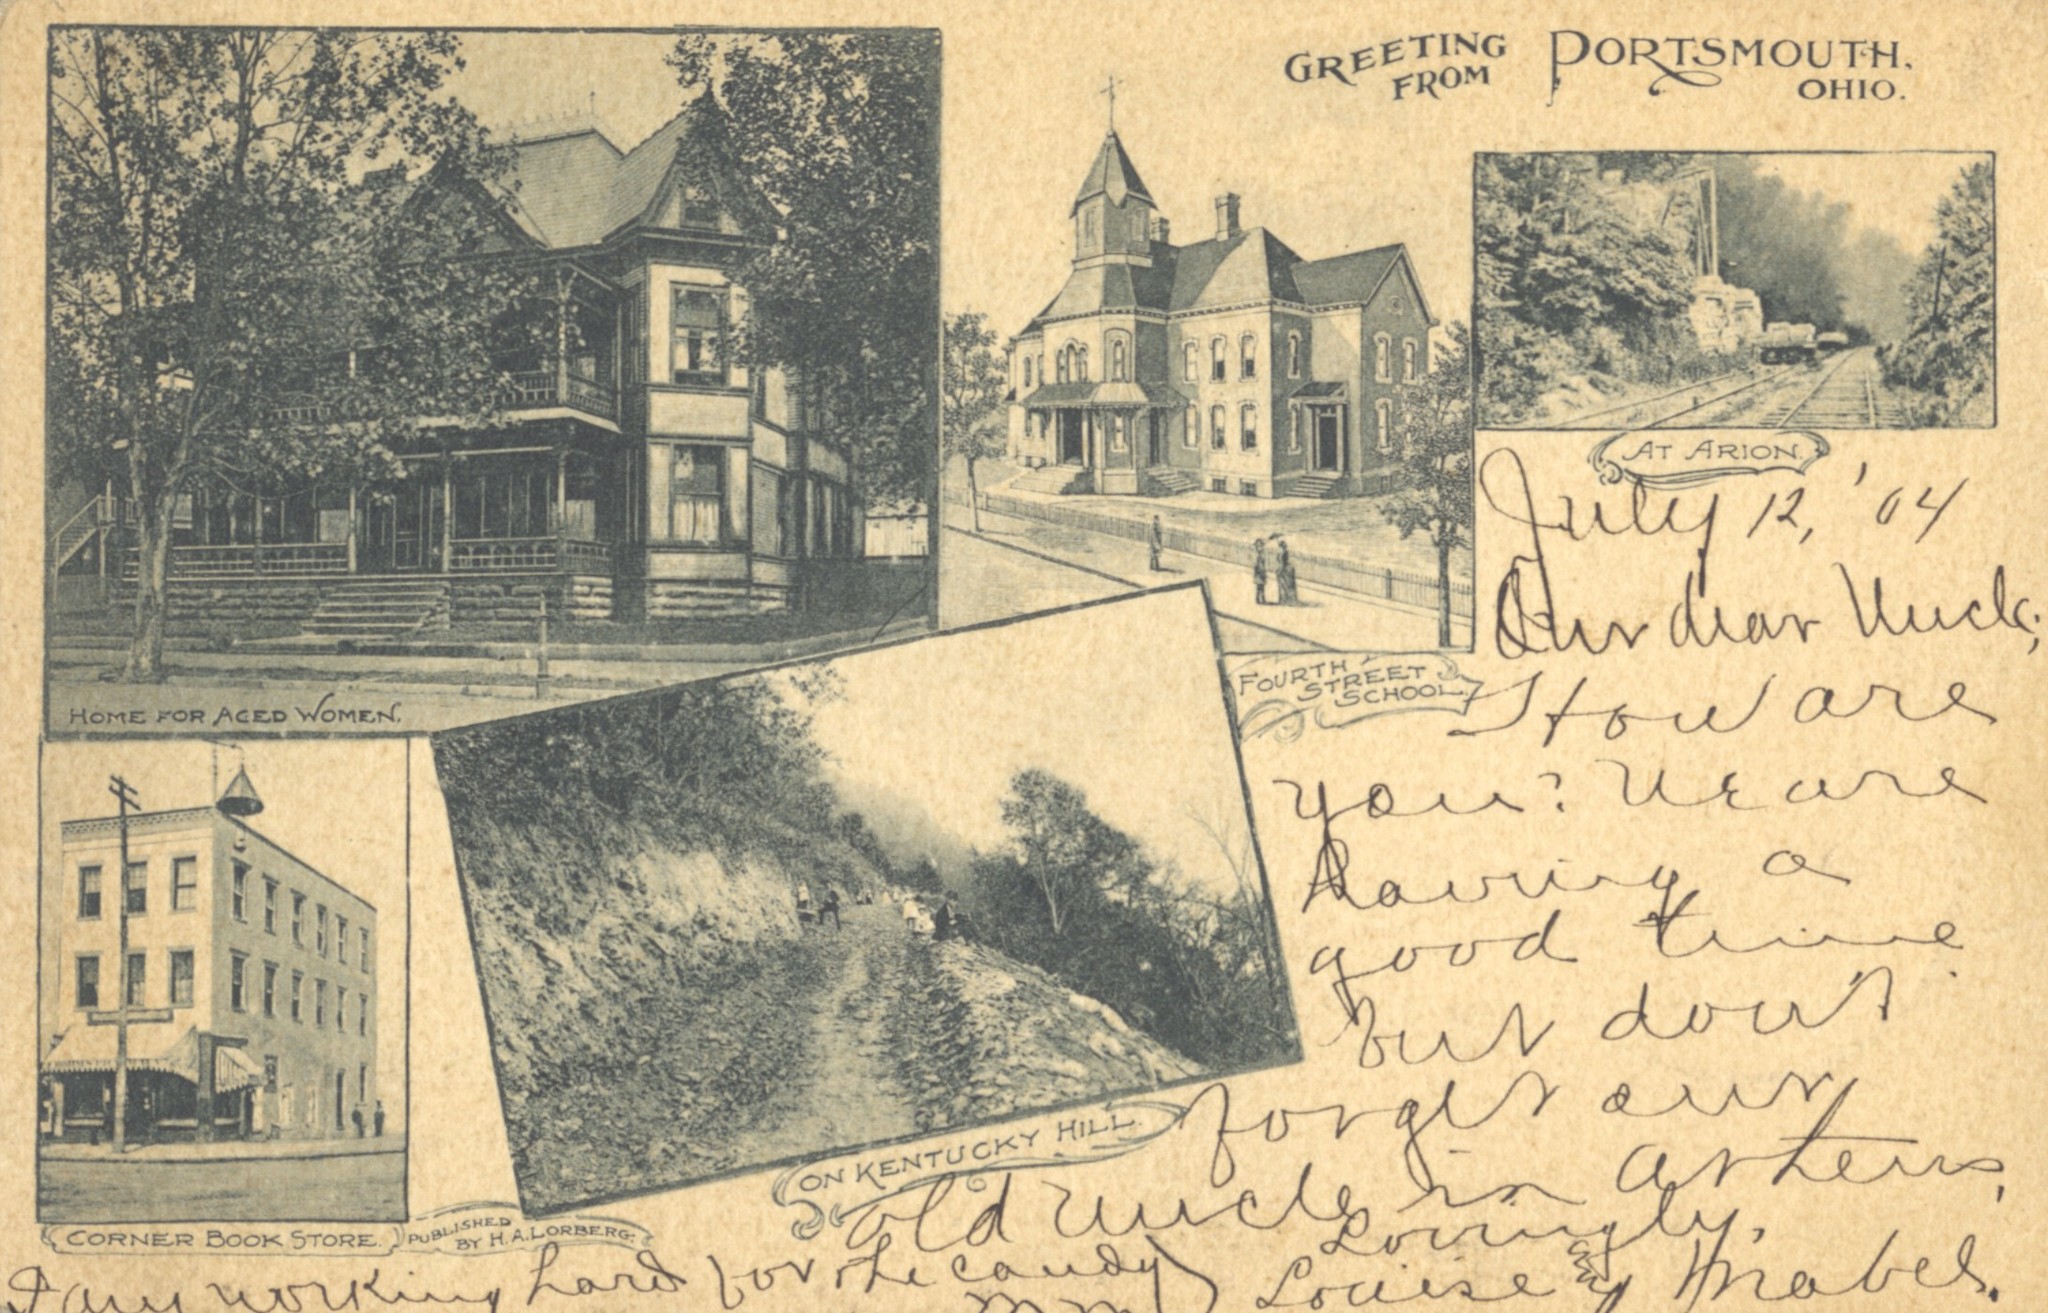 GREETING
FROM
PORTSMOUTH,
OHIO.
HOME FOR AGED WOMEN.
FOURTH
STREET
SCHOOL.
AT ARION.
CORNER BOOK STORE.
PUBLISHED
BY H. A. LORBERG.
ON KENTUCKY HILL.
July 12, '04
Our dear Uncle;
How are
you? We are
having a
good time
but don't
forget our
old Uncle in Athens,
Lovingly,
Louise & Mabel.
I am working hard for the candy